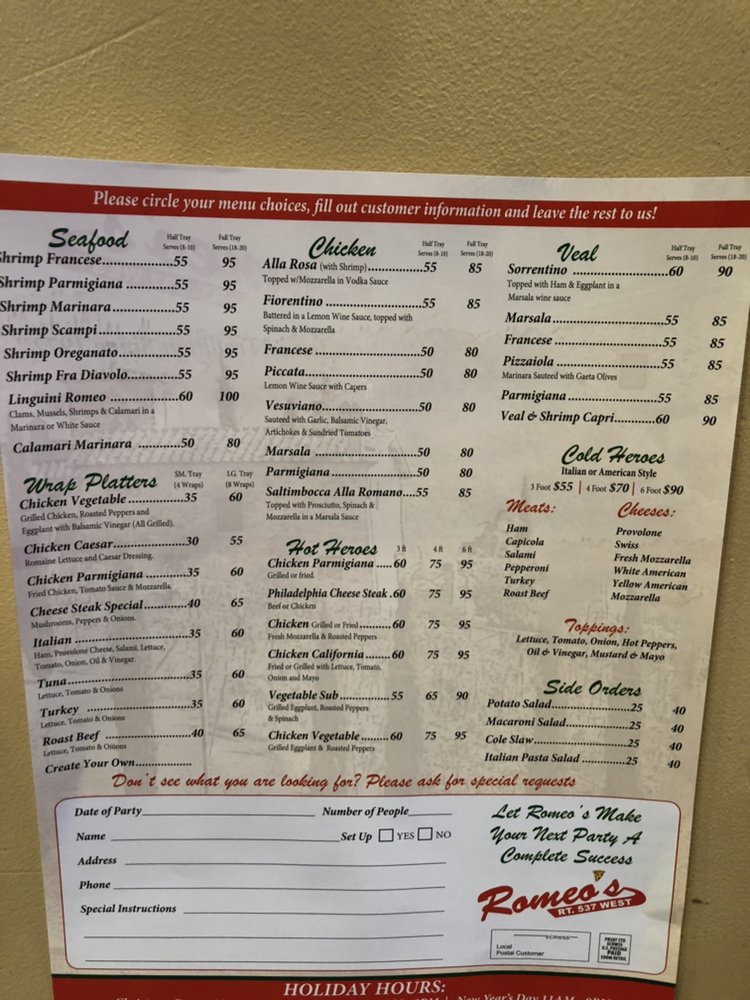 Please circle your menu choices, fill out customer information and leave the rest to us!
Seafood
Half Tray Full Tray
Serves (8-10) Serves (18-20)
Shrimp Francese....................55 95
Shrimp Parmigiana ..............55 95
Shrimp Marinara..................55 95
Shrimp Scampi......................55 95
Shrimp Oreganato.................55 95
Shrimp Fra Diavolo...............55 95
Linguini Romeo ....................60 100
Clams, Mussels, Shrimps & Calamari in a
Marinara or White Sauce
Calamari Marinara ..............50 80
Wrap Platters
SM. Tray LG. Tray
(4 Wraps) (8 Wraps)
Chicken Vegetable ................35 60
Grilled Chicken, Roasted Peppers and
Eggplant with Balsamic Vinegar (All Grilled).
Chicken Caesar.....................30 55
Romaine Lettuce and Caesar Dressing.
Chicken Parmigiana .............35 60
Fried Chicken, Tomato Sauce & Mozzarella.
Cheese Steak Special.............40 65
Mushrooms, Peppers & Onions.
Italian ....................................35 60
Ham, Provolone Cheese, Salami, Lettuce,
Tomato, Onion, Oil & Vinegar.
Tuna........................................35 60
Lettuce, Tomato & Onions
Turkey ...................................35 60
Lettuce, Tomato & Onions
Roast Beef ..............................40 65
Lettuce, Tomato & Onions
Create Your Own..................
Chicken
Half Tray Full Tray
Serves (8-10) Serves (18-20)
Alla Rosa (with Shrimp)..................55 85
Topped w/Mozzarella in Vodka Sauce
Fiorentino ..............................55 85
Battered in a Lemon Wine Sauce, topped with
Spinach & Mozzarella
Francese .................................50 80
Piccata....................................50 80
Lemon Wine Sauce with Capers
Vesuviano...............................50 80
Sauteed with Garlic, Balsamic Vinegar,
Artichokes & Sundried Tomatoes
Marsala .................................50 80
Parmigiana ............................50 80
Saltimbocca Alla Romano....55 85
Topped with Prosciutto, Spinach &
Mozzarella in a Marsala Sauce
Hot Heroes 3 ft 4 ft 6 ft
Chicken Parmigiana .....60 75 95
Grilled or fried.
Philadelphia Cheese Steak .60 75 95
Beef or Chicken
Chicken Grilled or Fried...........60 75 95
Fresh Mozzarella & Roasted Peppers
Chicken California........60 75 95
Fried or Grilled with Lettuce, Tomato,
Onion and Mayo
Vegetable Sub.................55 65 90
Grilled Eggplant, Roasted Peppers
& Spinach
Chicken Vegetable..........60 75 95
Grilled Eggplant & Roasted Peppers
Veal
Half Tray Full Tray
Serves (8-10) Serves (18-20)
Sorrentino ............................60 90
Topped with Ham & Eggplant in a
Marsala wine sauce
Marsala .................................55 85
Francese .................................55 85
Pizzaiola ................................55 85
Marinara Sauteed with Gaeta Olives
Parmigiana ...........................55 85
Veal & Shrimp Capri............60 90
Cold Heroes
Italian or American Style
3 Foot $55 | 4 Foot $70 | 6 Foot $90
Meats: Cheeses:
Ham Provolone
Capicola Swiss
Salami Fresh Mozzarella
Pepperoni White American
Turkey Yellow American
Roast Beef Mozzarella
Toppings:
Lettuce, Tomato, Onion, Hot Peppers,
Oil & Vinegar, Mustard & Mayo
Side Orders
Potato Salad........................25 40
Macaroni Salad...................25 40
Cole Slaw.............................25 40
Italian Pasta Salad .............25 40
Don't see what you are looking for? Please ask for special requests
Date of Party Number of People
Name Set Up YES NO
Address
Phone
Special Instructions
Let Romeo's Make
Your Next Party A
Complete Success
Romeo's
RT. 537 WEST
ECRWSS
Local
Postal Customer
PRSRT STD
ECRWSS
U.S. POSTAGE
PAID
EDDM RETAIL
HOLIDAY HOURS:
New Year's Day 11AM